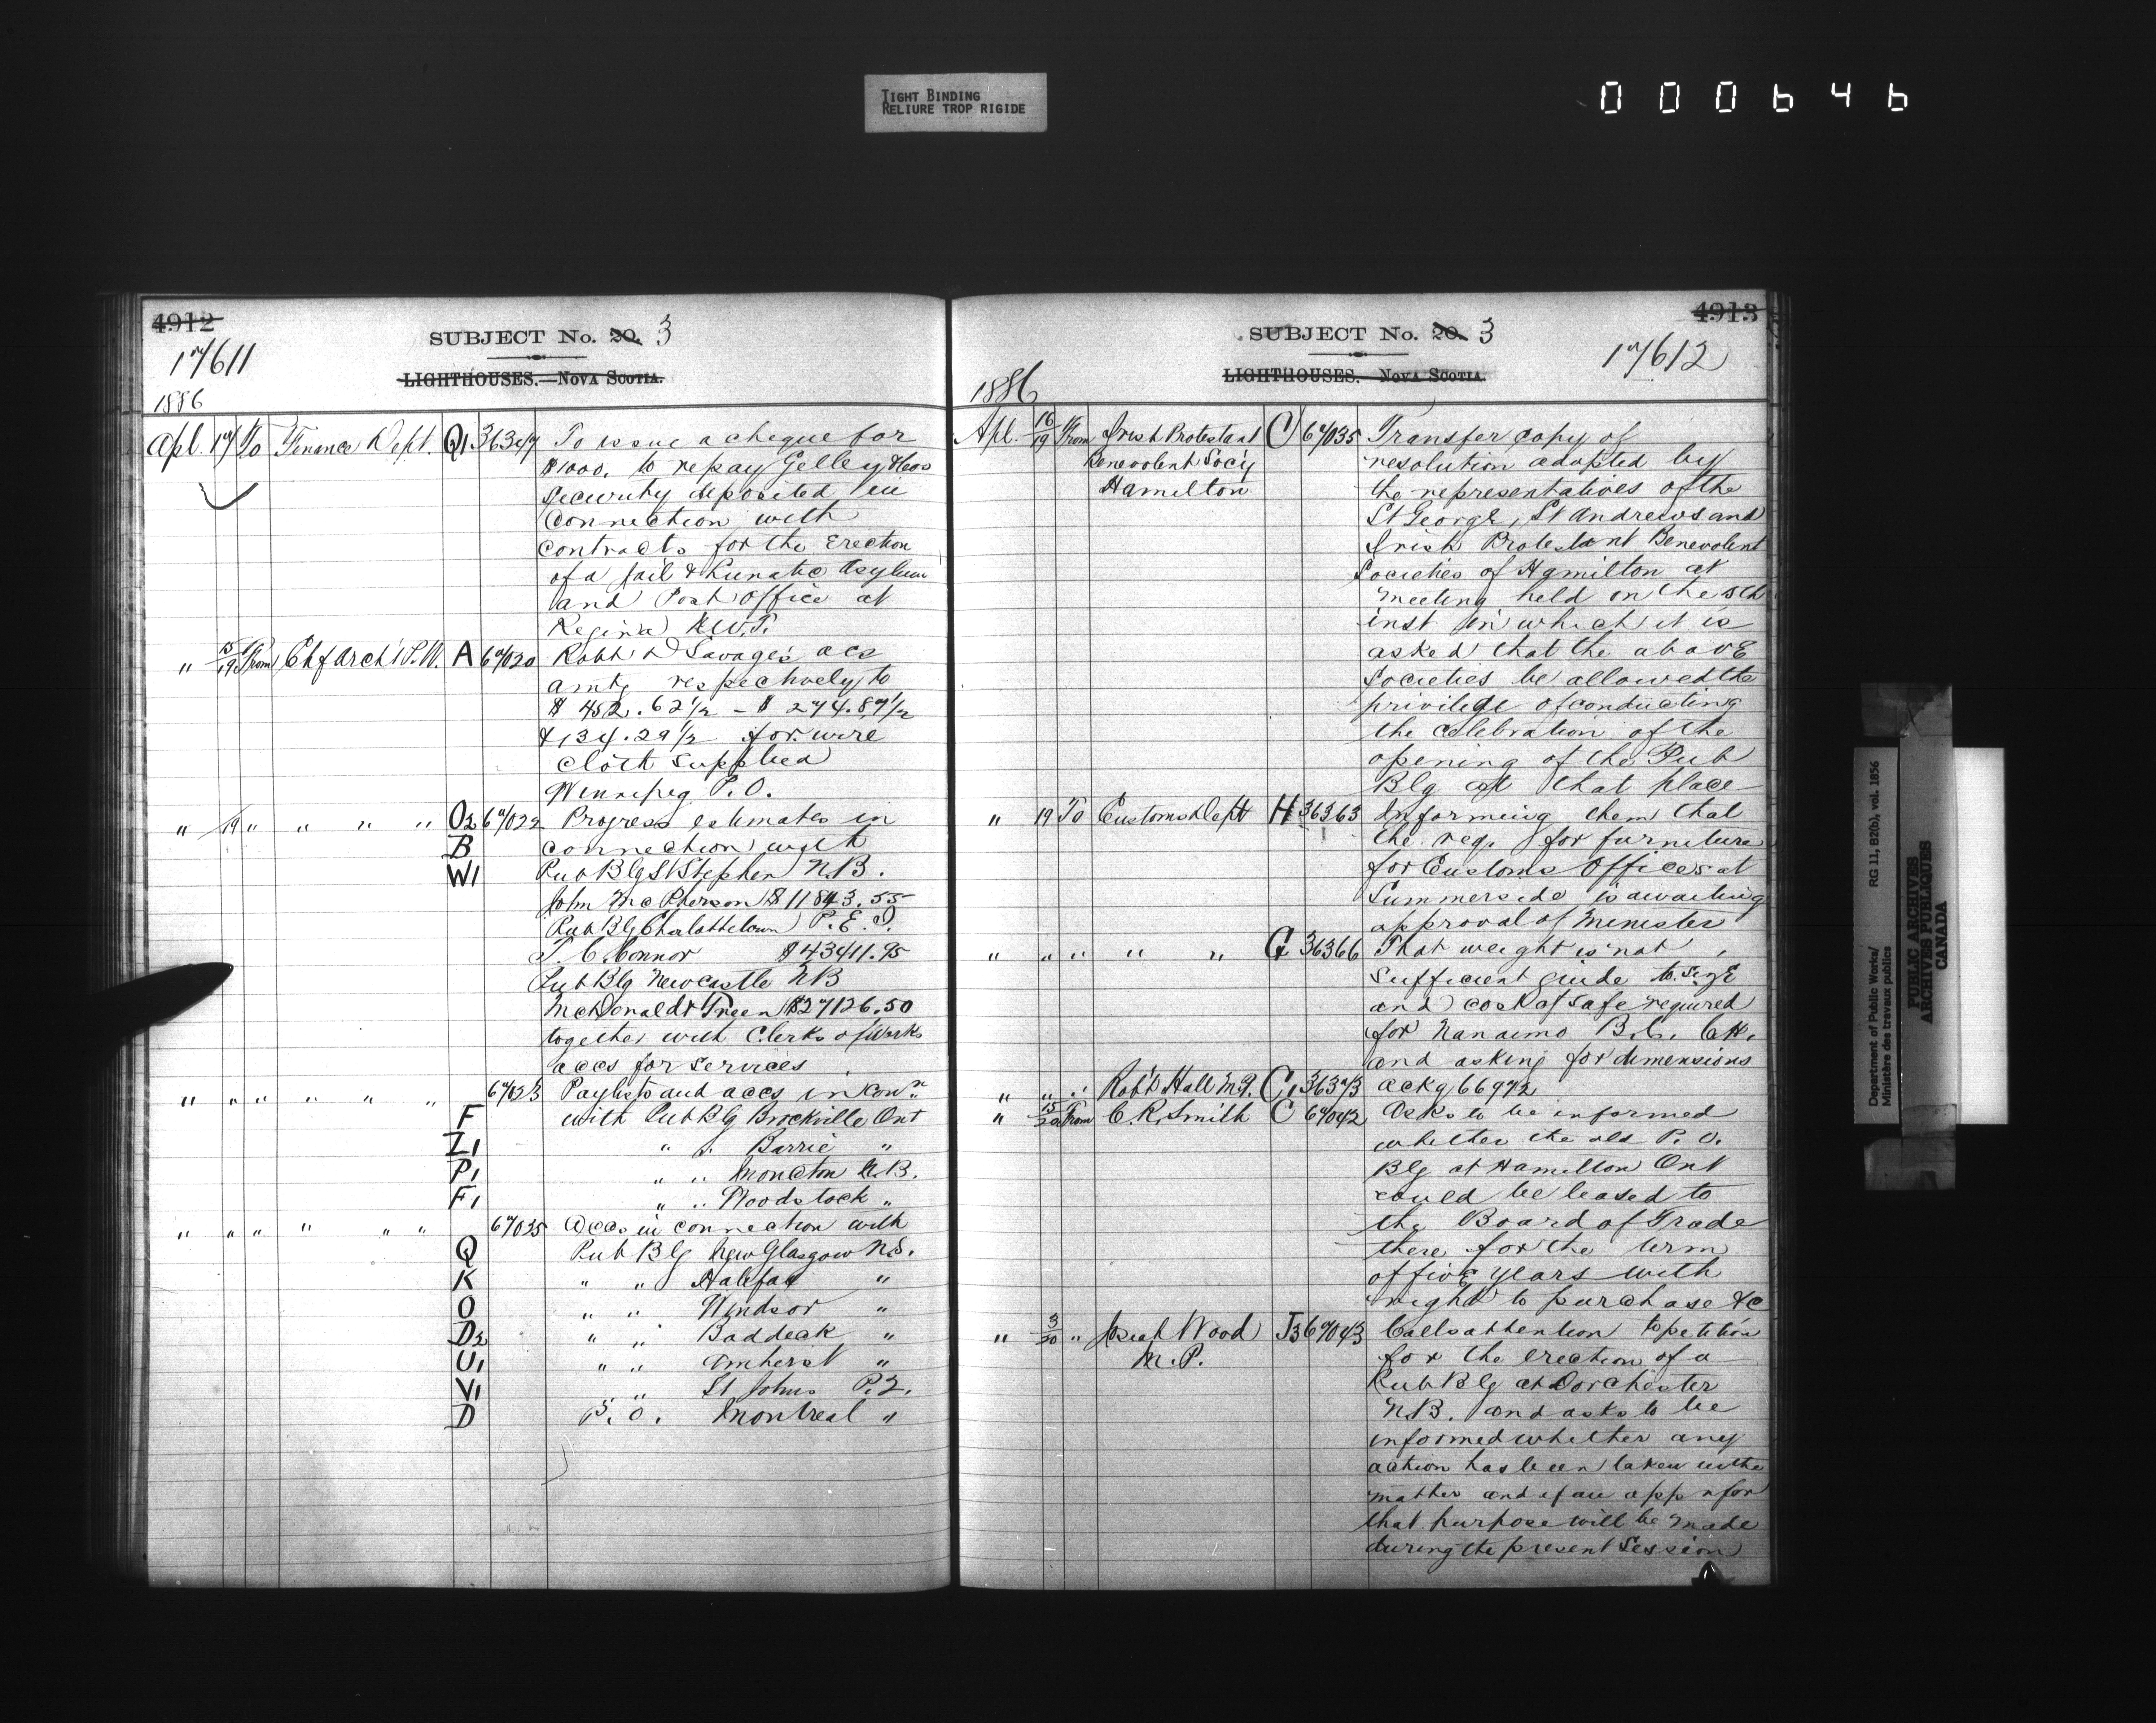 TIGHT BINDING
RELIURE TROP RIGIDE
000646
4912
SUBJECT No. 20. 3
17611
LIGHTHOUSES.—NOVA SCOTIA.
1886
Apl. 17 To Finance Dept. Q1 36347 To issue a cheque for
$1000. to repay
security deposited in
connection with
contracts for the Erection
of a Jail & Lunatic Asylum
and Post Office at
Regina N.W.T.
" 15/19 From Chf Arch't P.W. A 67020 Robb & Savage's accs
amtg respectively to
$ 452.62 1/2 – $ 274.87 1/2
& 134.29 1/2 for wire
cloth supplied
Winnipeg P.O.
" 19 " " " " O2 67022 Progress estimates in
B connection with
W1 Pub Blg St Stephen N.B.
John McPherson $11843.55
Pub Blg Charlottetown P.E.I.
T. C. Connor $43411.95
Pub Blg Newcastle NB
McDonald & Treen $27126.50
together with Clerks of Works
accs for services
" " " " " " 67023 Paylists and accs in conn
F with Pub Blg Brockville Ont
Z1 " " Barrie "
P1 " " Moncton N.B.
F1 " " Woodstock "
" " " " " " 67025 Accs in connection with
Q Pub Blg New Glasgow N.S.
K " " Halifax "
O " " Windsor "
D2 " " Baddeck "
U1 " " Amherst "
V1 " " St Johns P.Q.
D P.O. Montreal "
4913
SUBJECT No. 20. 3
17612
LIGHTHOUSES. NOVA SCOTIA.
1886
Apl. 16/19 From Irish Protestant C 67035 Transfer copy of
Benevolent Soc'y resolution adopted by
Hamilton the representatives of the
St George, St Andrews and
Irish Protestant Benevolent
Societies of Hamilton at
meeting held on the 5th
inst in which it is
asked that the above
Societies be allowed the
privilege of conducting
the celebration of the
opening of the Pub
Blg at that place
" 19 To Customs Dept H 36363 Informing them that
the req. for furniture
for Customs Offices at
Summerside is awaiting
approval of Minister
" " " " " G 36366 That weight is not
sufficient guide to size
and cost of safe required
for Nanaimo B.C. C.H.
and asking for dimensions
" " " Rob't Hall M.P. C1 36373 ackg 66972
" 15/20 From C. R. Smith C 67042 Asks to be informed
whether the old P.O.
Blg at Hamilton Ont
could be leased to
the Board of Trade
there for the term
of five years with
right to purchase &c
" 3/20 " Josiah Wood J3 67043 Calls attention to petition
M.P. for the erection of a
Pub Blg at Dorchester
N.B. and asks to be
informed whether any
action has been taken in the
matter and if an appn for
that purpose will be made
during the present Session
Department of Public Works/
Ministère des travaux publics
RG 11, B2(b), vol. 1856
PUBLIC ARCHIVES
ARCHIVES PUBLIQUES
CANADA